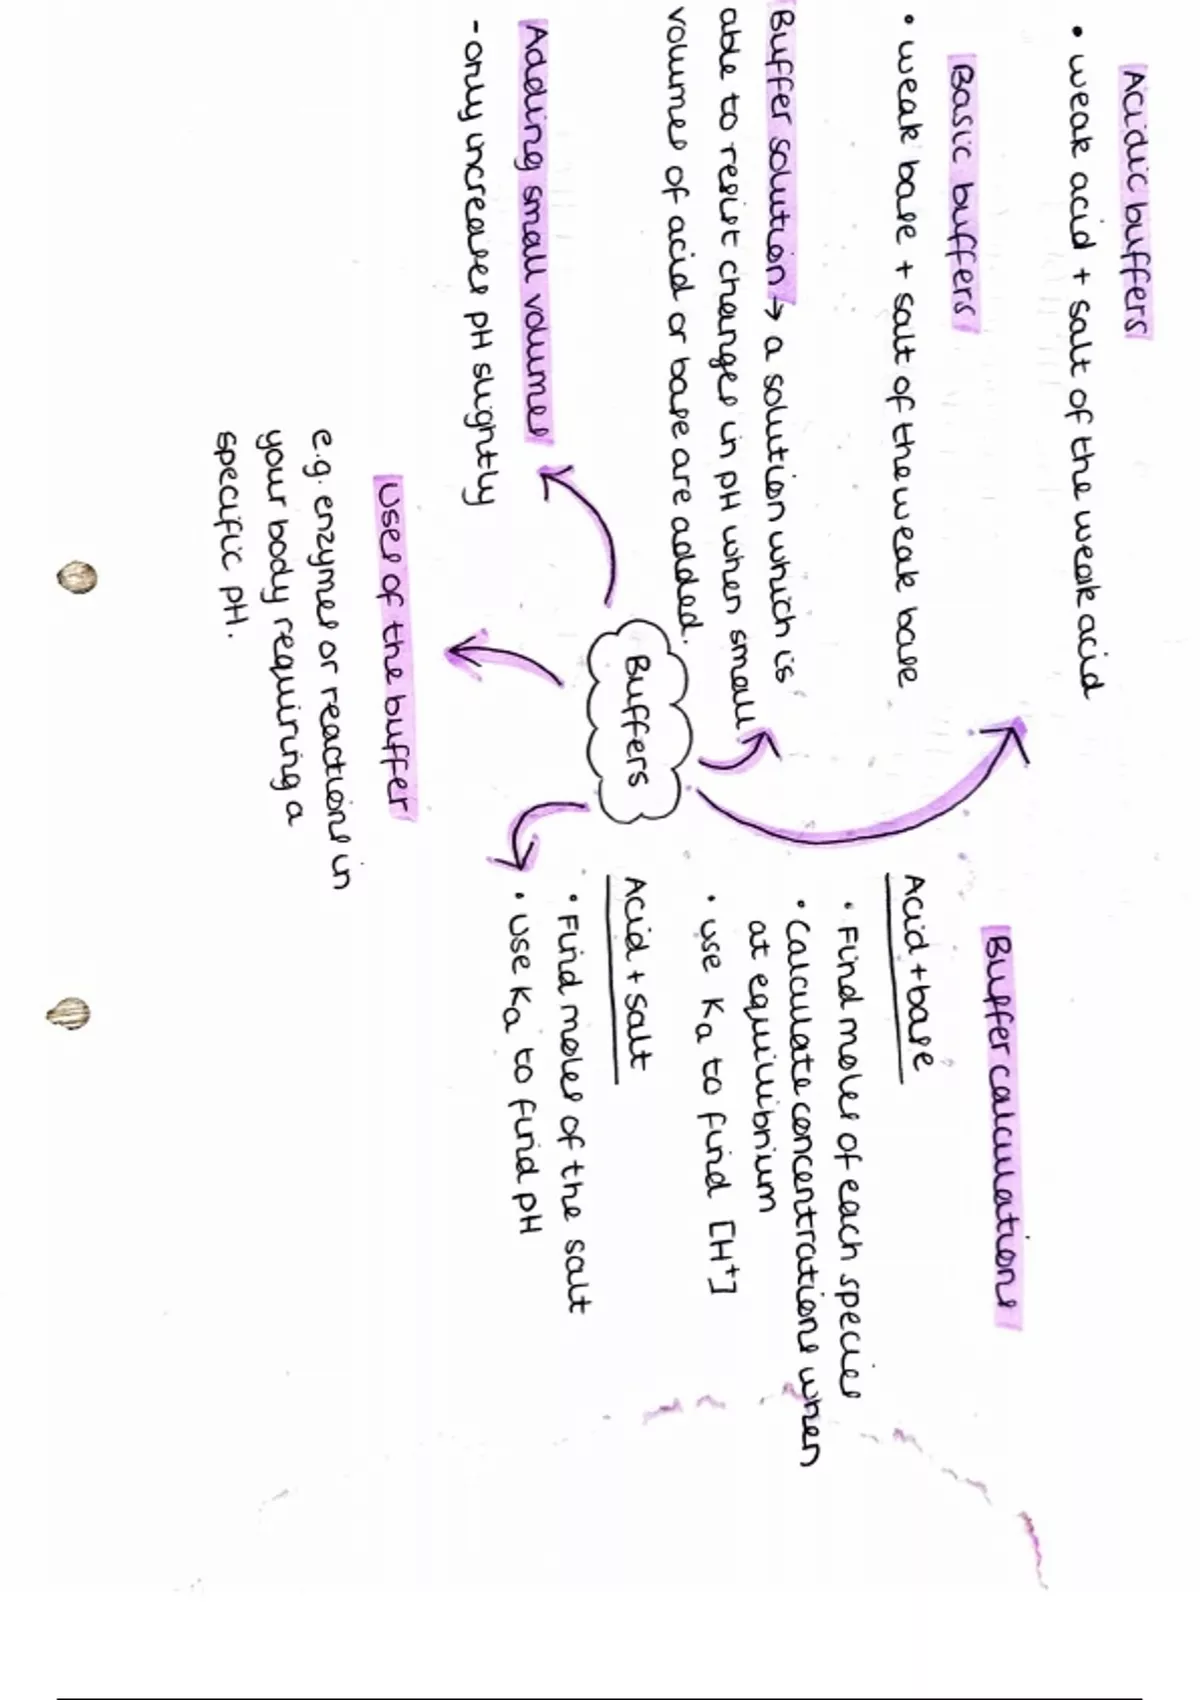 Acidic buffers
• weak acid + salt of the weak acid
Basic buffers
• weak base + salt of the weak base
Buffer solution → a solution which is
able to resist changes in pH when small
volumes of acid or base are added.
Adding small volumes
- only increases pH slightly
Uses of the buffer
e.g. enzymes or reactions in
your body requiring a
specific pH.
Buffers
Buffer calculations
Acid + base
• Find moles of each species
• Calculate concentrations when
at equilibrium
• use Ka to find [H⁺]
Acid + salt
• Find moles of the salt
• use Ka to find pH